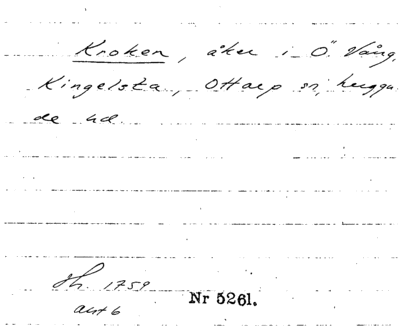 Kroken, åker i Ö. Vång,
Kingelsta, Ottarp sn, Luggu-
de hd.
Lh. 1759
akt 6
Nr 5261.